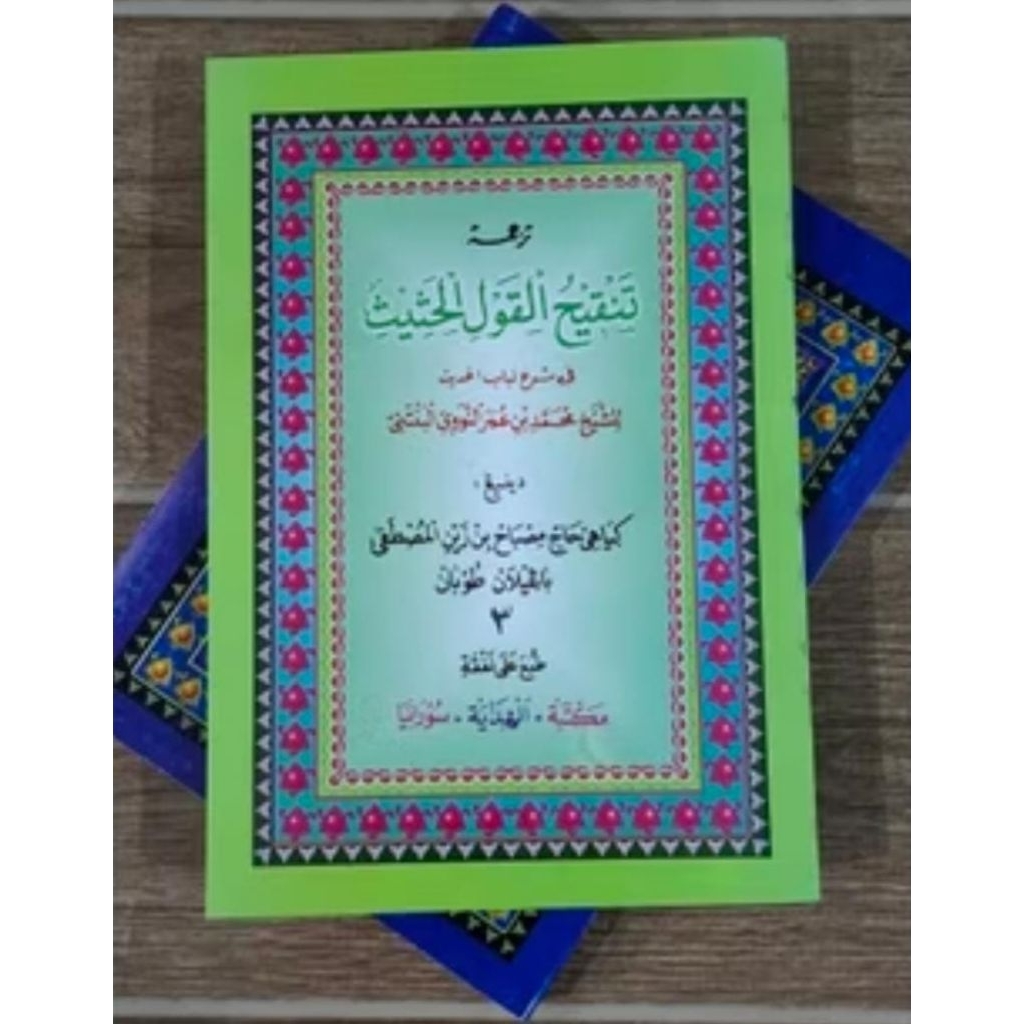 ترجمة
تَنْقِيْحُ الْقَوْلِ الْحَثِيْثِ
في شرح لباب الحديث
للشيخ محمد بن عمر النووي البنتني
دينيڠ :
كياهي حاج مصباح بن زين المصطفى
باڠيلان طوبان
٣
طبع على نفقة
مكتبة • الهداية • سورابيا